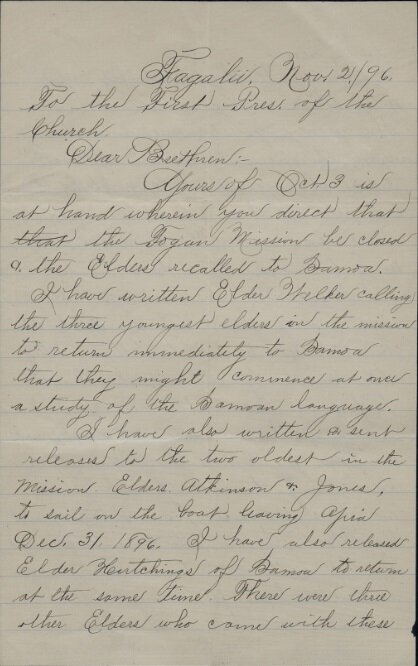 Fagalii, Nov. 21/96.
To the First Pres. of the
Church
Dear Beethren:-
Yours of Oct 3 is
at hand wherein you direct that
that the Togan Mission be closed
& the Elders recalled to Samoa.
I have written Elder Welker calling
the three youngest elders in the mission
to return immediately to Samoa
that they might commence at once
a study of the Samoan language.
I have also written & sent
releases to the two oldest in the
Mission Elders Atkinson & Jones,
to sail on the boat leaving Apia
Dec. 31, 1896. I have also released
Elder Hutchings of Samoa to return
at the same time. There were three
other Elders who came with these